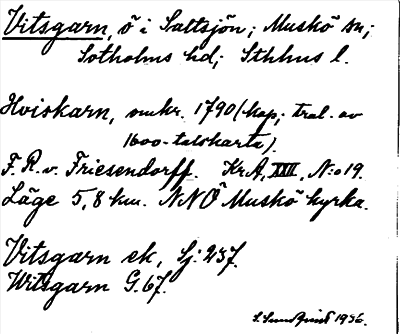 Vitsgarn, ö i Saltsjön; Muskö sn;
Sotholms hd; Sthlms l.
Hviskarn, omkr. 1790 (kop; tral. av
1600-talskarta).
F. R. v. Friesendorff. Kr.A, XXII, N:o 19.
Läge 5,8 km. NNÖ Muskö kyrka.
Vitsgarn ek, Sj. 237.
Witsgarn G. 67.
1936.